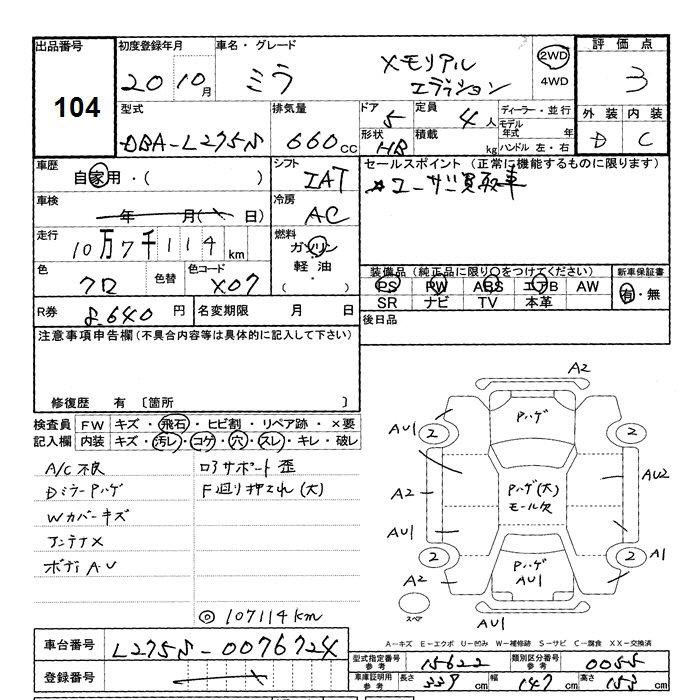 出品番号 初度登録年月 車名・グレード 評価点
104 20 10月 ミラ メモリアル エディション 2WD 4WD 3
外装 内装
D C
型式 排気量 ドア 定員 ディーラー・並行
DBA-L275S 660cc 5 4人 モデル年式 年
形状 積載 ハンドル 左・右
HB kg
車歴 自家用・( ) シフト IAT セールスポイント (正常に機能するものに限ります)
☆ユーザー買取車
車検 年 月( 日) 冷房 AC
走行 10万7千114km 燃料 ガソリン
軽油
( ・ )
色 クロ 色替 色コード X07
装備品(純正品に限り○をつけてください) 新車保証書
PS PW ABS エアB AW 有・無
SR ナビ TV 本革
R券 8,640円 名変期限 月 日 後日品
注意事項申告欄(不具合内容等は具体的に記入して下さい)
修復歴 有 〔箇所 〕
検査員 FW キズ・飛石・ヒビ割・リペア跡・×要
記入欄 内装 キズ・汚レ・コゲ・穴・スレ・キレ・破レ
A/C不良 ロアサポート歪
Dミラーアハゲ F廻り押され(大)
Wカバーキズ
アンテナX
ボディAU
◎107114km
A2
Pハゲ
AU1 2 2
Pハゲ(大) AU2
A2 モール欠
AU1
2 2 A1
Pハゲ
A2 AU1
スペア
AU1
A-キズ E-エクボ U-凹み W-補修跡 S-サビ C-腐食 XX-交換済
車台番号 L275S-0076724
型式指定番号 参考 15622 類別区分番号 参考 0055
登録番号
車庫証明用 参考 長さ 339cm 幅 147cm 高さ 153cm